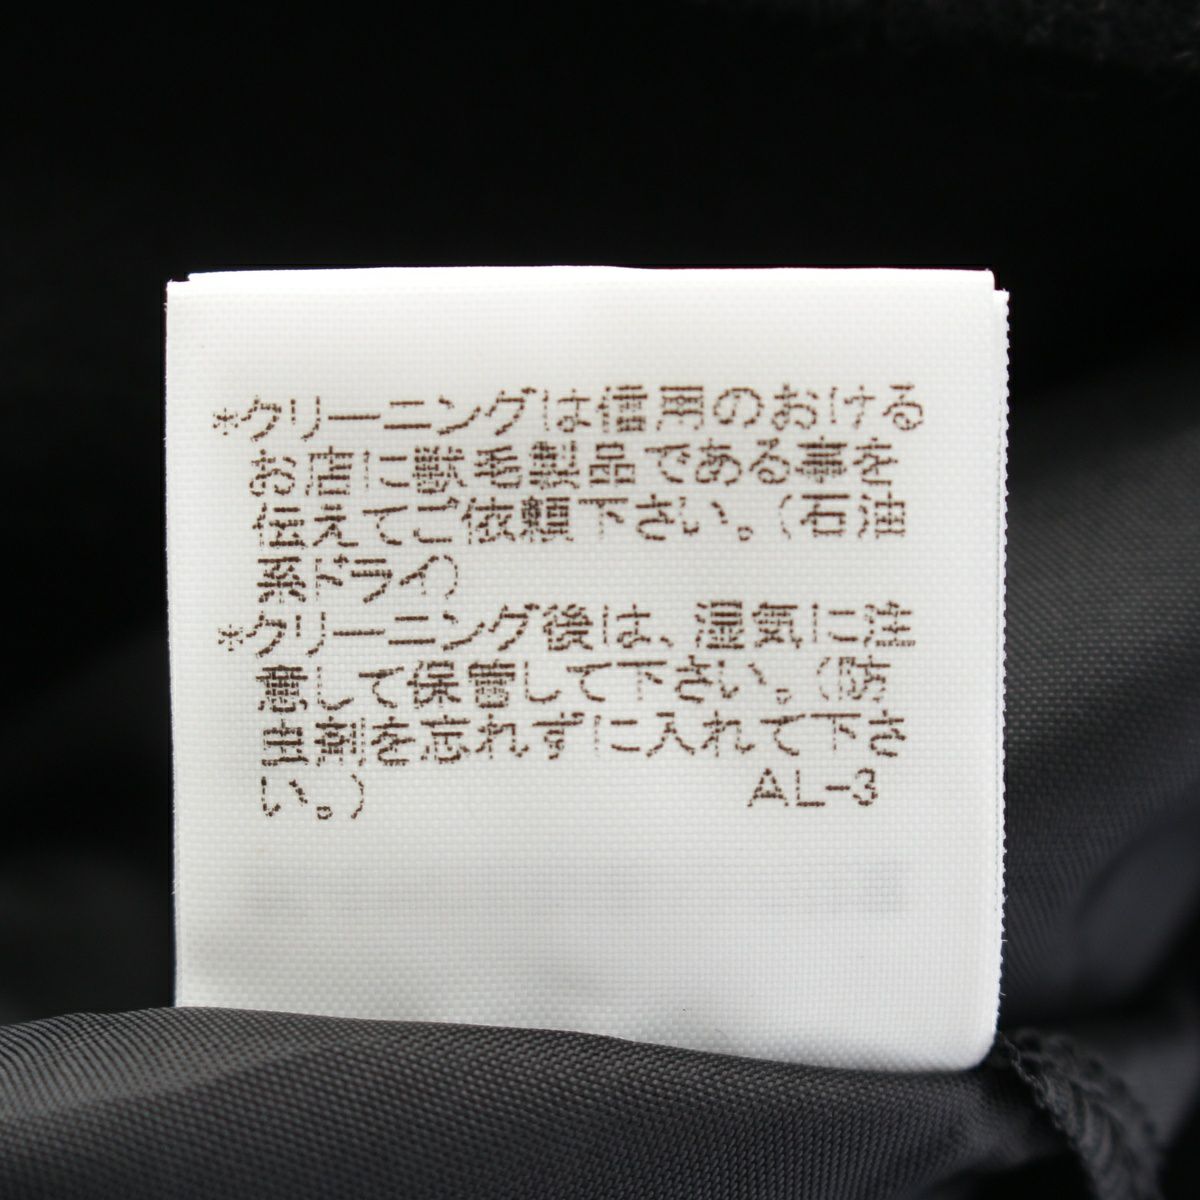 *クリーニングは信用のおける
お店に獣毛製品である事を
伝えてご依頼下さい。(石油
系ドライ)
*クリーニング後は、湿気に注
意して保管して下さい。(防
虫剤を忘れずに入れて下さ
い。)
AL-3